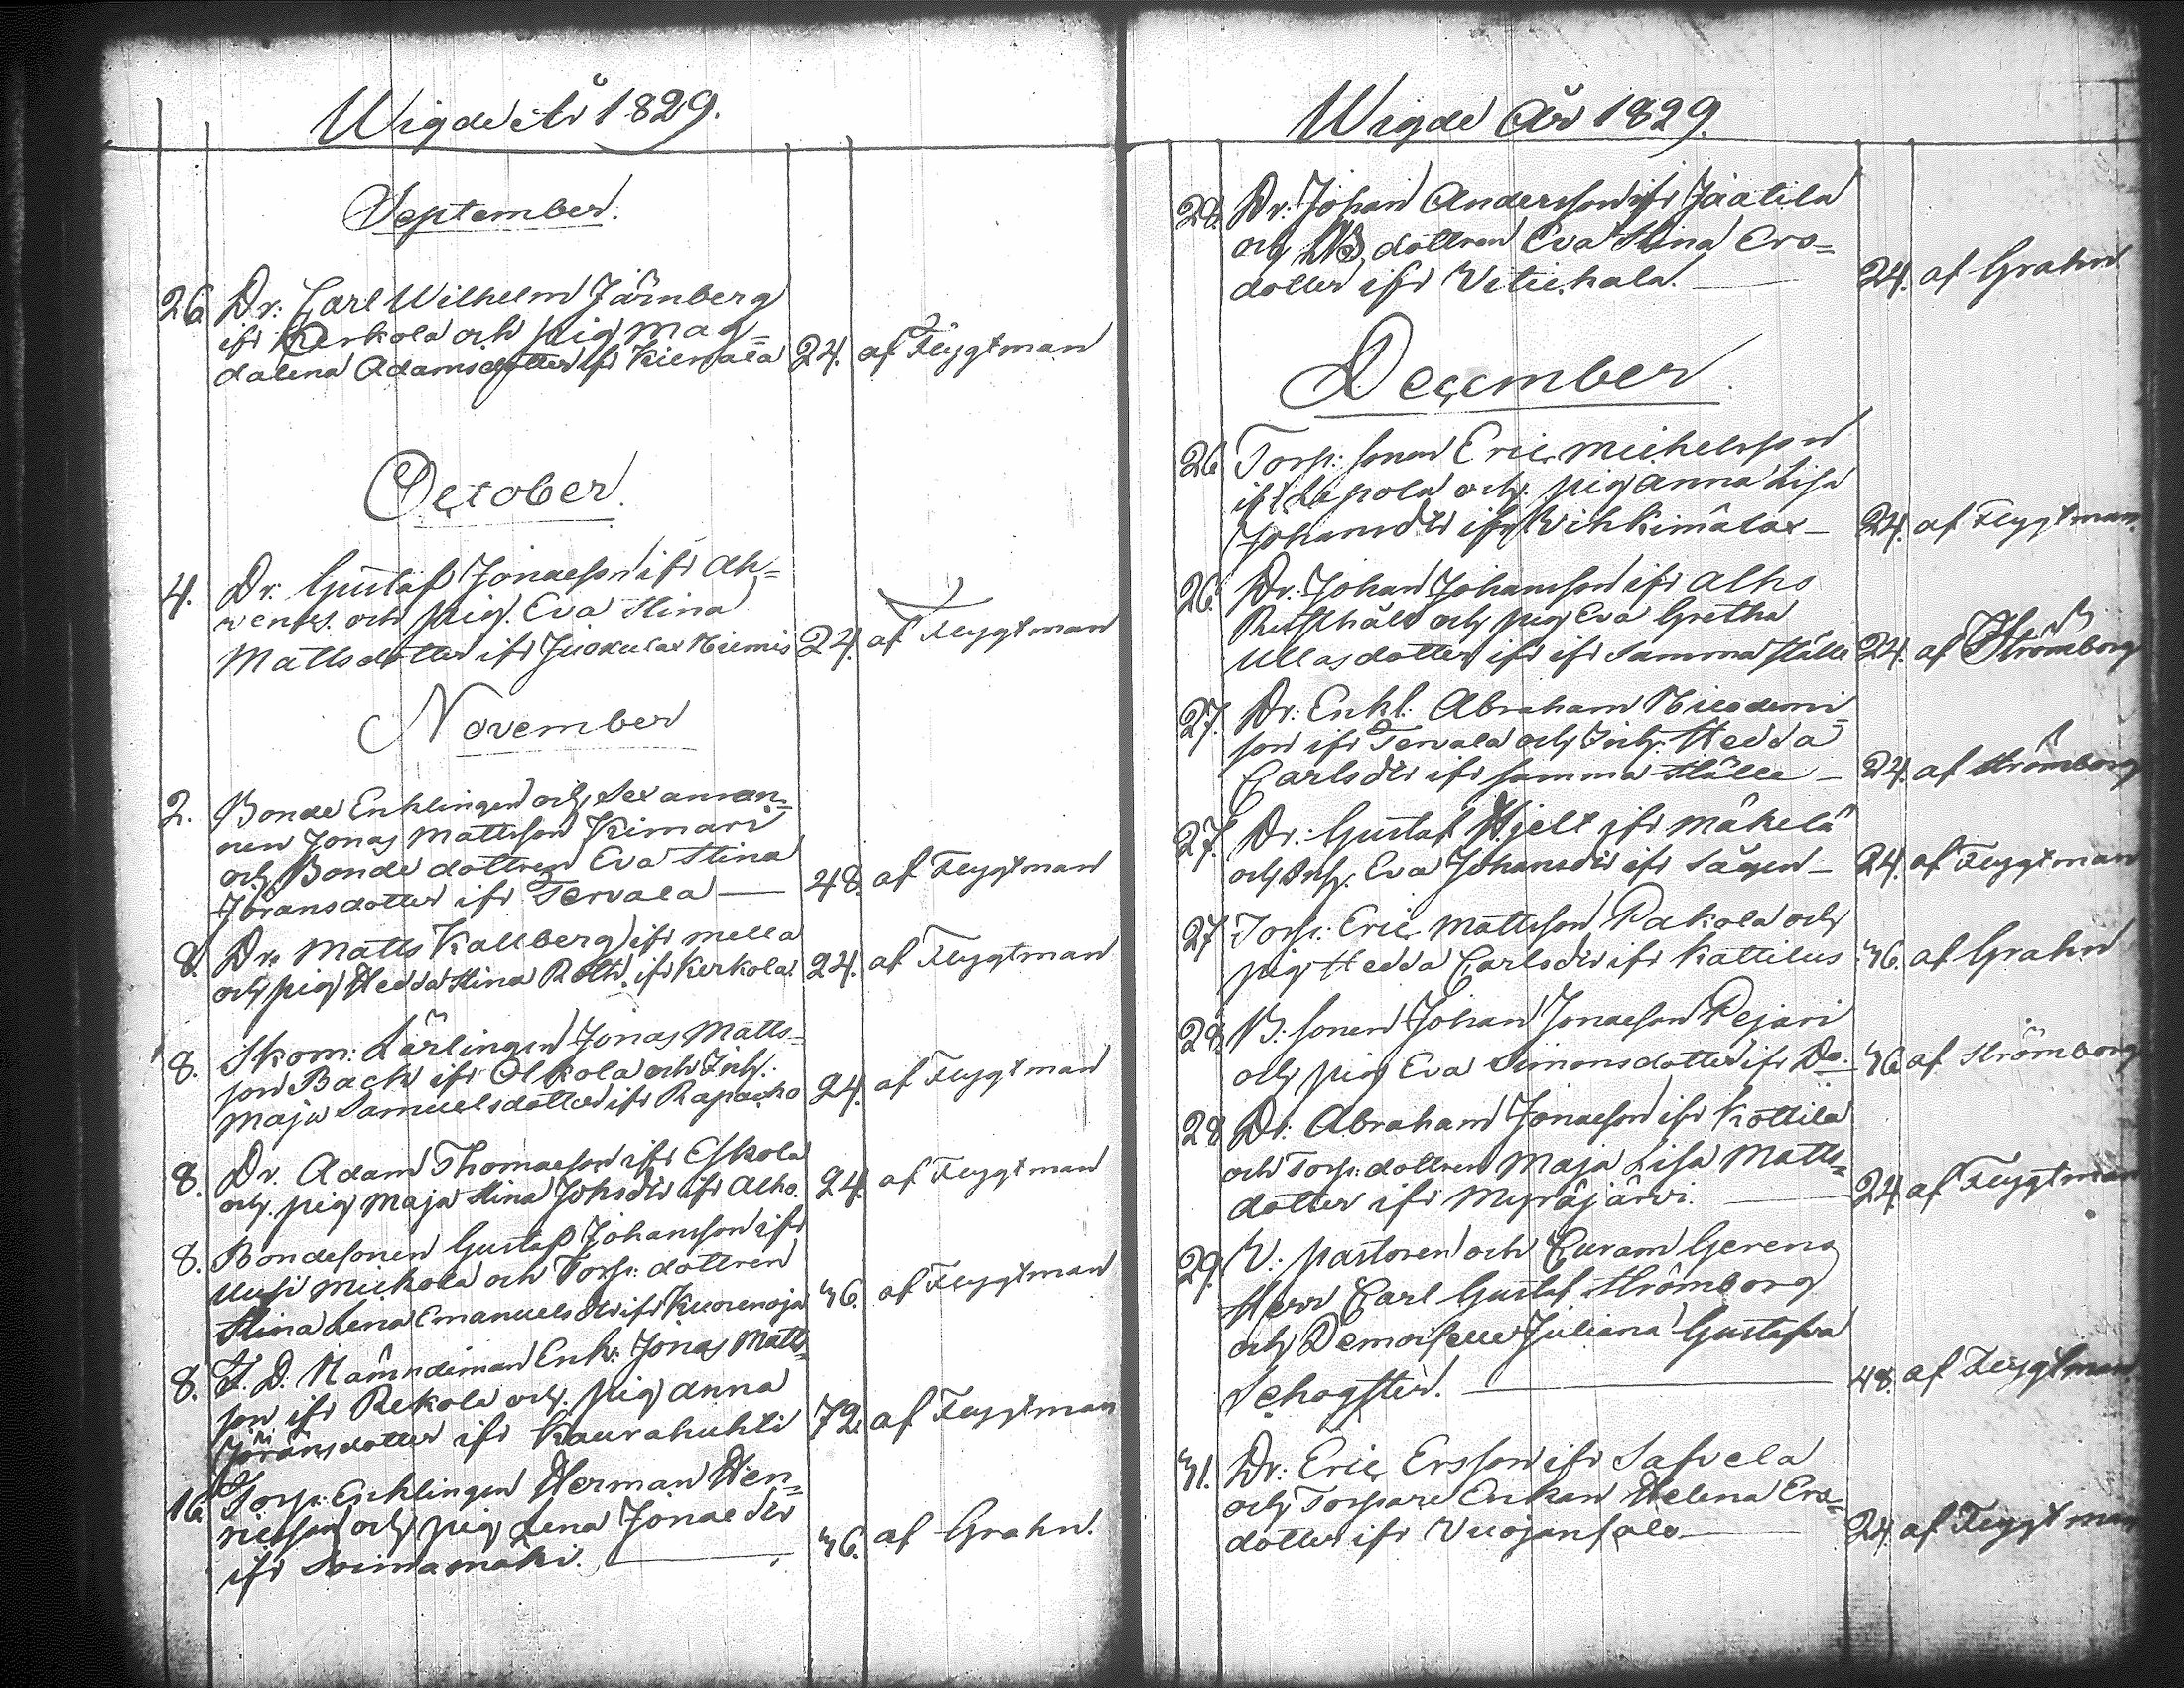 Wigde År 1829.
September.
26. Dr: Carl Wilhelm Järnberg
ifr Kerkola och pig Mag=
dalena Adamsdotter ifr Kiemala 24. af Flygtman
October.
4. Dr. Gustaf Jonaesson ifr Ah=
vents. och pig. Eva Stina
Mattsdotter ifr Juokulax Niemis 24. af Flygtman
November
2. Bonde Enklingen och Sexman=
nen Jonas Mattsson Kimari
och Bonde dottren Eva Stina
Jöransdotter ifr Tervala — 48. af Flygtman
8. Dr. Matts Kallberg ifr Mella
och pig Hedda Stina Roth. ifr Kerkola 24. af Flygtman
8. Skom: Lärlingen Jonas Matts=
son Back ifr Olkola och Inh.
Maja Samuelsdotter ifr Rapacko 24. af Flygtman
8. Dr. Adam Thomaesson ifr Eskola
och. pig Maja Stina Johsdtr ifr Alho. 24. af Flygtman
8. Bondesonen Gustaf Johansson ifr
Uusi Mickola och Torp: dottren
Stina Lena Emanuelsdtr ifr Kuorenoja 36. af Flygtman
8. F. D. Nämndeman Enk: Jonas Matts=
son ifr Rekola och. pig Anna
Jöransdotter ifr Kaurahuhti 72. af Flygtman
16. Torp: Enklingen Herman Hen=
ricsson och pig Lena Jonaedtr
ifr Soimamäki. — 36. af Grahn.
Wigde År 1829.
28. Dr: Johan Andersson ifr Jaatila
och dottren Eva Stina Ers=
dotter ifr Vitickala. — 24. af Grahn
December.
26. Torp: sonen Eric Michelsson
ifr Lepola och. pig Anna Lisa
Johansdtr ifr Wihkimälax — 24. af Flygtman.
26. Dr. Johan Johansson ifr Alho
Rusthåll och pig Eva Gretha
Ullasdotter ifr ifr Samma Ställe 24. af Strömborg
27. Dr: Enkl: Abraham Nicodemi=
son ifr Tervala och Inh. Hedda
Carlsdtr ifr samma Ställe — 24. af Strömborg
27. Dr: Gustaf Hjelt ifr Mäkelä
och Inh. Eva Johansdtr ifr Sågen — 24. af Flygtman
27. Torp: Eric Mattsson Pakola och
pig Hedda Carlsdtr ifr Kattilus 36. af Grahn
28. B: sonen Johan Jonaesson Pejari
och pig Eva Simonsdotter ifr Do. — 36. af Strömborg
28. Dr: Abraham Jonaesson ifr Kottila
och Torp: dottren Maja Lisa Matts=
dotter ifr Myräjärvi. — 24. af Flygtman
29. V: pastoren och Curam Gerens
Herr Carl Gustaf Strömborg
och Demoiselle Juliana Gustafva
— 48. af Flygtman
31. Dr: Eric Ersson ifr Safvela
och Torpare Enkan Helena Ers=
dotter ifr Vuojansalo — 24. af Flygtman